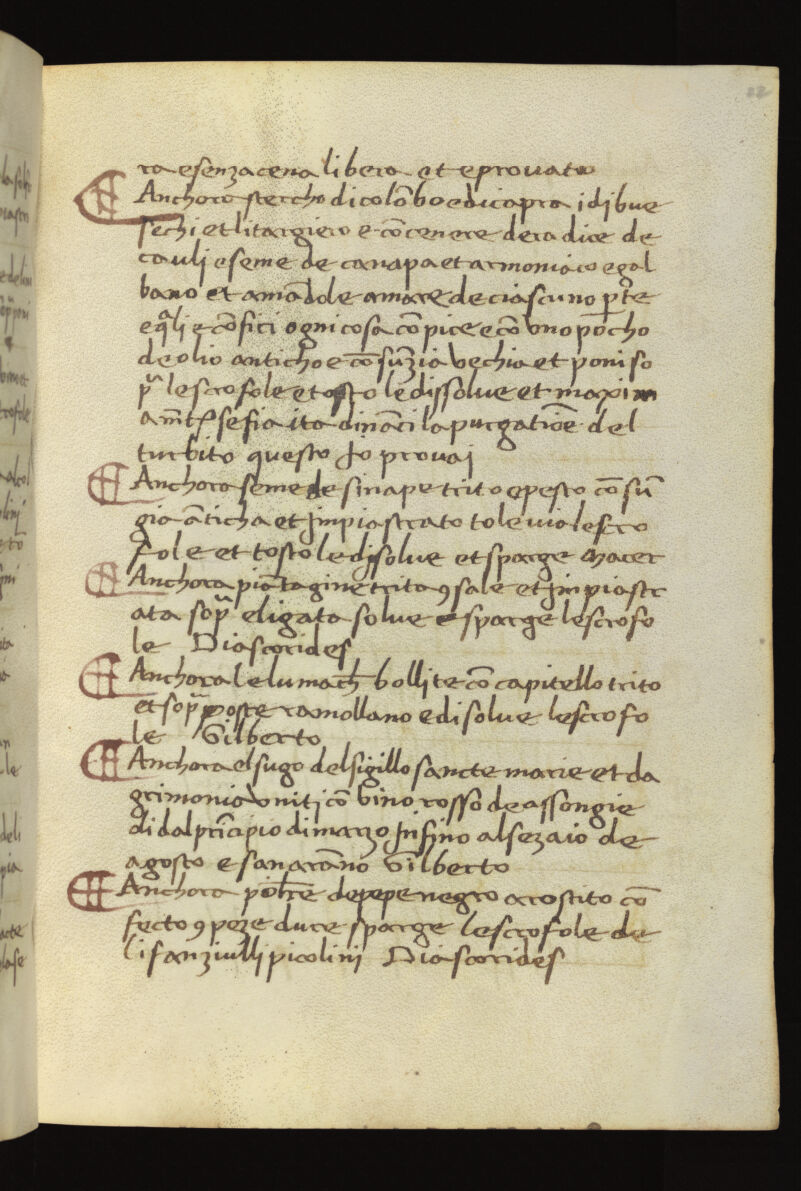 22
ra e senza cena libera et e provato
Anchora stercho di colõbo e di capra i di bue
sechi et litargiro e cõ cenere de radice de
cauli e seme de canapa et armoniaco e gal
bano et amãdole amare de ciascuno p̱te
eq̃li e cõfici ogni cosa cõ pice e cõ uno pocho
de olio anticho e cõ sunzia vechia et poni so
p̃ le scrofole et tosto le dissolve et maxim
amẽte se fia ita dinãci la purgatiõe del
turbito questo Jo provai
Anchora seme de sinape trito e pesto cõ sũ
gia ãticha et Jmpiastrato tole via le scro
fole et tosto le disolve et sparge Macer
Anchora piãtagine trita 9 sale et Jmpiastr
ata sop̃ e ligata solve e sparge le scrofo
le Diascorides
Anchora le lumach̃ bollite cõ capitello trito
et sop̃ poste ramollano e disolve le scrofo
le Gilberto
Anchora el sugo del sigillo sancte marie et da
grimonia uniti cõ vino rosso de assongie
di dal prĩcipio di marzo Jnfino al sezaio de
agosto e sanarãno Gilberto
Anchora polṽe de pepe negro arostito cõ
fecto 9 peze dure sparge le scrofole de
li fanziulli picolini Diascorides